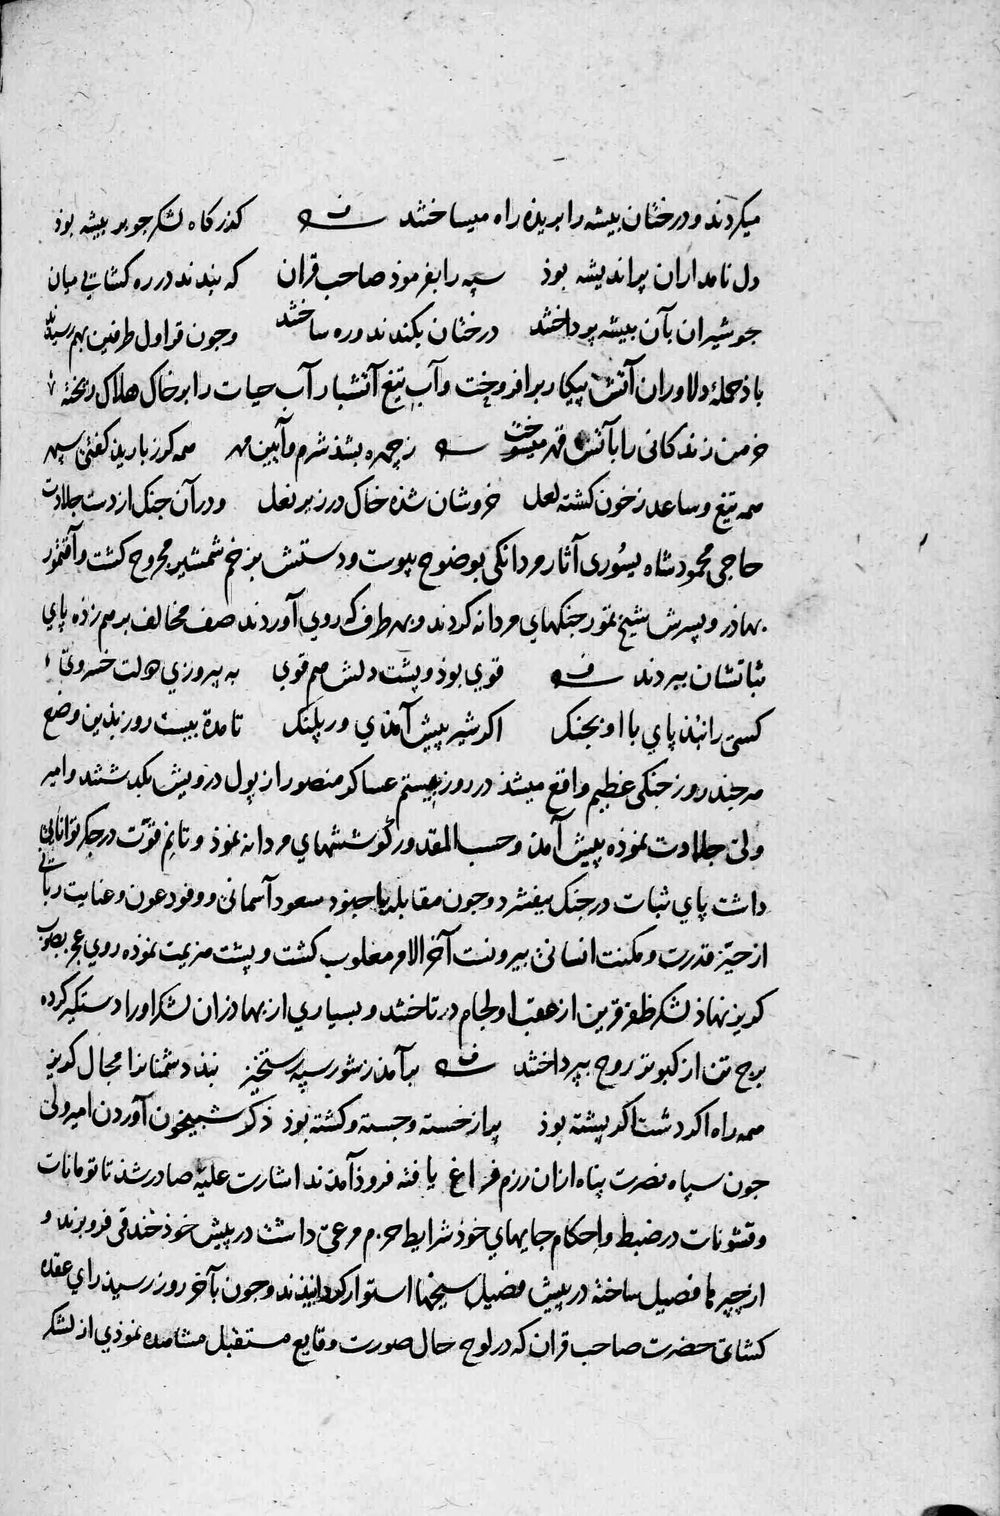 میکردند و درختان بیشه را بریذه راه میساختند کذر کاه لشکر جو بر بیشه بوذ
دل نامداران پر اندیشه بوذ سپه را بفرموذ صاحب قران که بندند در ره کشایی میان
جو شیران بآن بیشه پرداختند درختان بکندند و ره ساختند وجون قراول طرفین بهم رسیدند
باذ حملۀ دلاوران آتش پیکار بر افروخت و آب تیغ آتشبار آب حیات را بر خاک هلاک ریخته
خرمن زندکانی را بآتش قهر میسوخت ز جهره بشذ شرم و آیین مهر همه کرز بارید کفتی سپهر
همه تیغ و ساعد ز خون کشته لعل خروشان شذه خاک در زیر نعل و در آن جنک از دست جلادت
حاجی محمود شاه یسوری آثار مردانکی بوضوح پیوست و دستش بزخم شمشیر مجروح کشت و آقتمور
بهاذر و پسرش شیخ تمور جنکهای مردانه کردند و بهر طرف که روی آوردند صف مخالف بر هم زذه پای
ثباتشان ببردند قوی بوذ و پشت دلش هم قوی به پیروزی دولت خسروی
کسی را نبذ پای با او بجنک اکر شیر پیش آمذی ور پلنک تا مدة بیست روز بذین وضع
هر جند روز جنکی عظیم واقع میشذ در روز بیستم عساکر منصور از پول درویش بکدشتند و امیر
ولی جلادت نموذه پیش آمذ و حسب المقدور کوششهای مردانه نموذ و تا نم قوّت در جکر توانایی
داشت پای ثبات در جنک بیفشرد وجون مقابله با جنوذ سعود آسمانی و وفود عون و عنایت ربانی
از حیّز قدرت و مکنت انسانی بیرونست آخر الامر مغلوب کشت و پشت هزیمت نموذه روی عجز بصوب
کریز نهاذ لشکر ظفر قرین از عقب او لجام در تاختند و بسیاری از بهاذران لشکر او را دستکیر کرده
برج تن از کبوتر روح بپرداختند بر آمذ ز شور سپه رستخیز نبذ دشمنانرا مجال کریز
همه راه اکر دشت اکر پشته بوذ پر از خسته و جسته و کشته بوذ ذکر شبیخون آوردن امیر ولی
جون سپاه نصرت پناه از ان رزم فراغ یافته فروذ آمذند اشارت علیّه صادر شذ تا تومانات
و قشونات در ضبط و احکام جایهای خوذ شرایط حزم مرعی داشت در پیش خوذ خندقی فرو برند و
از چپرها فصیل ساخته در پیش فصیل سیخها استوار کردانیذند وجون بآخر روز رسیذ رای عقده
کشای حضرت صاحب قران که در لوح حال صورت وقایع مستقبل مشاهده نموذی از لشکر